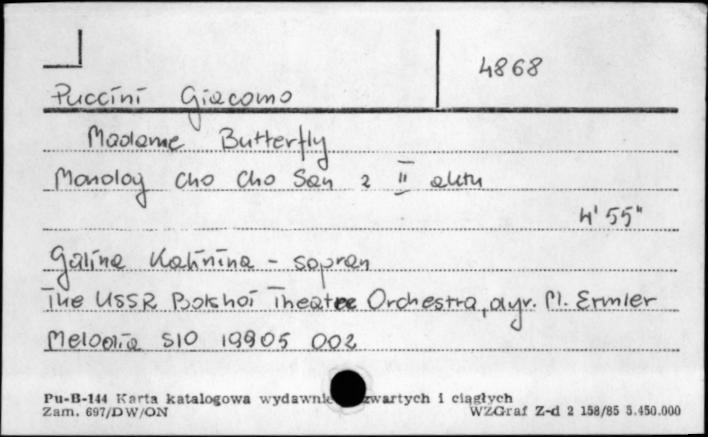 4868
Puccini Giacomo
Madame Butterfly
Monolog Cho Cho San z II aktu
4' 55"
Galina Kalinina - sopran
The USSR Bolshoi Theatre Orchestra, dyr. M. Ermler
Melodia S10 19905 002
Pu-B-144 Karta katalogowa wydawnic zwartych i ciągłych
Zam. 697/DW/ON WZGraf Z-d 2 158/85 3.450.000